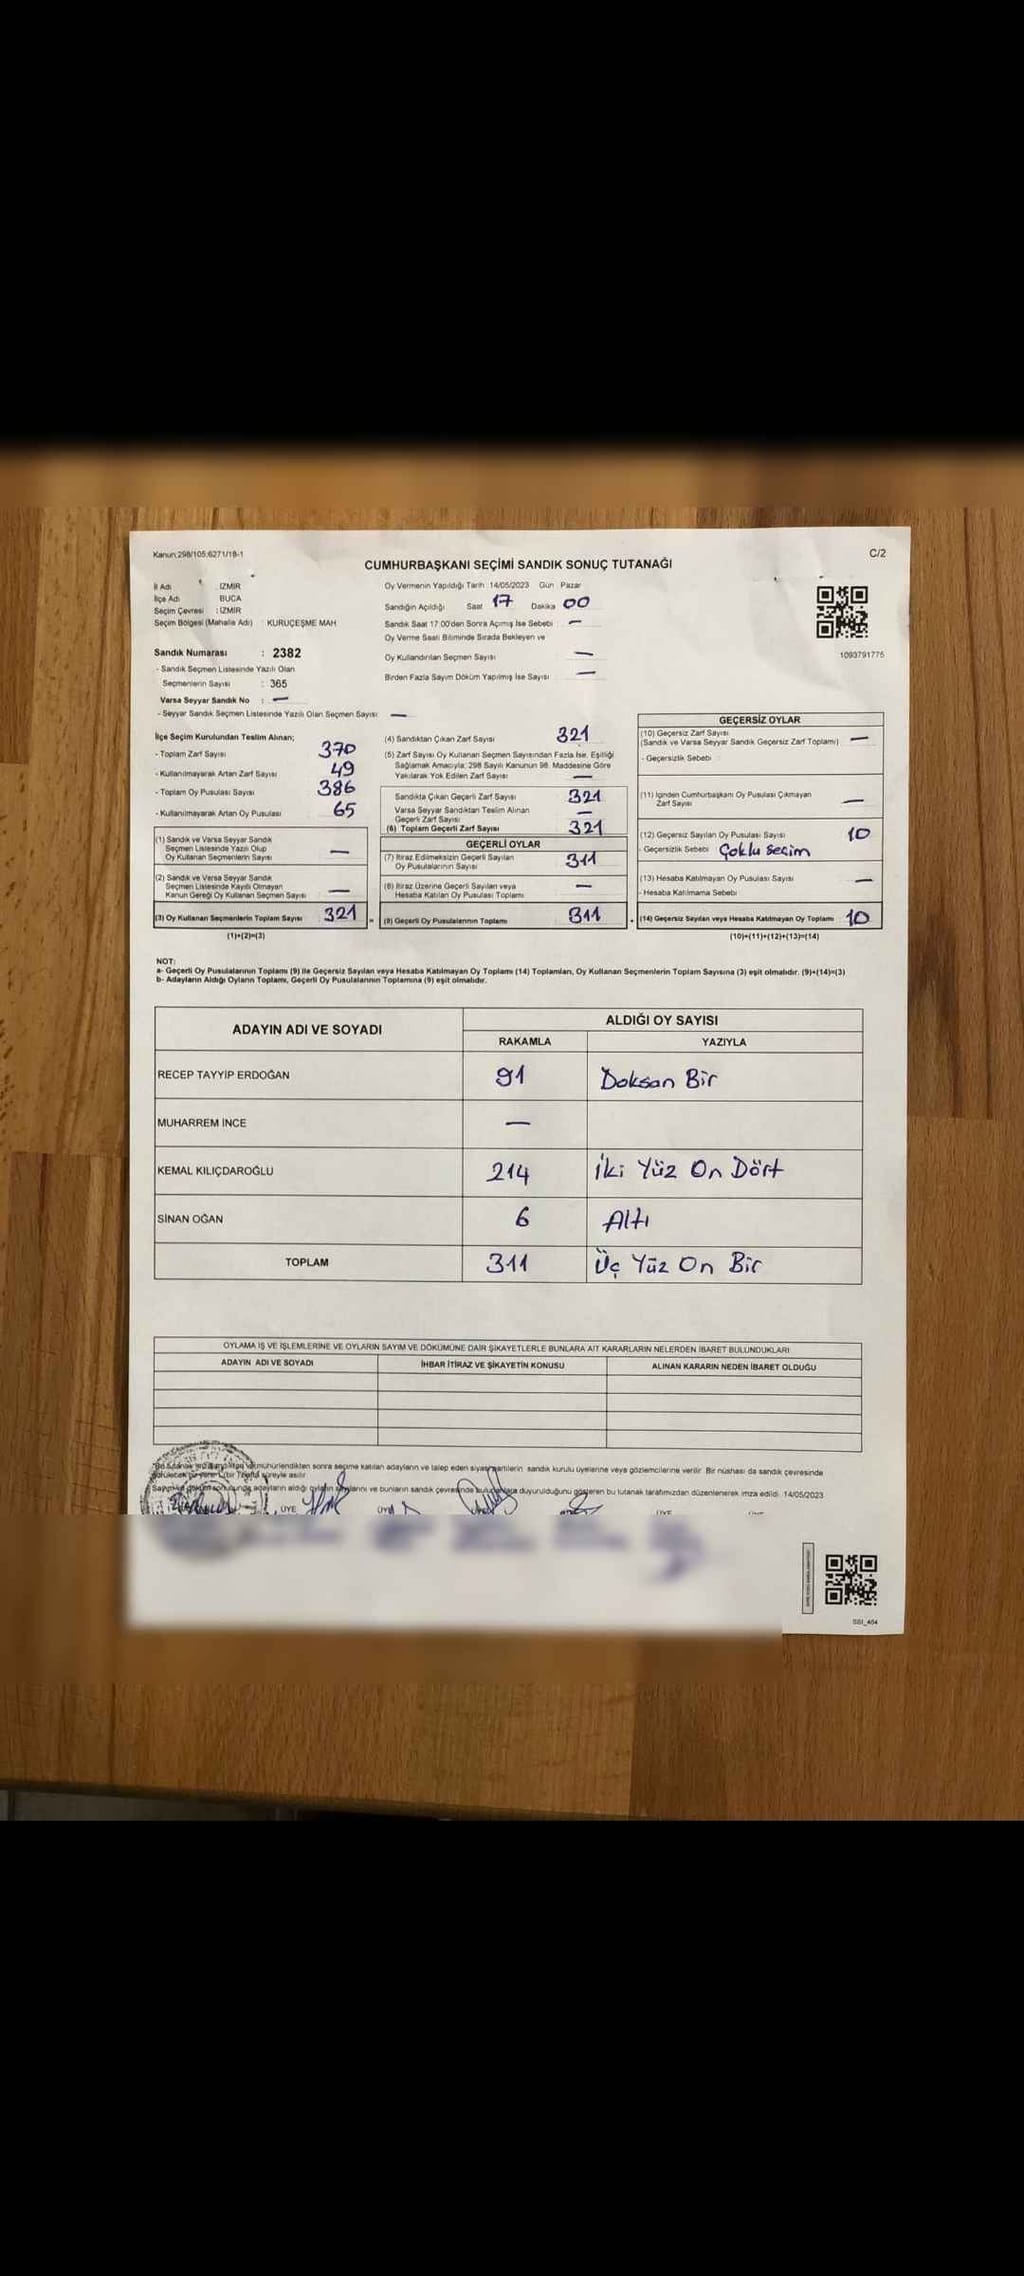 Kanun:298/105:6271/18-1
C/2
CUMHURBAŞKANI SEÇİMİ SANDIK SONUÇ TUTANAĞI
İl Adı : İZMİR
İlçe Adı : BUCA
Seçim Çevresi : İZMİR
Seçim Bölgesi (Mahalle Adı) : KURUÇEŞME MAH
Sandık Numarası : 2382
- Sandık Seçmen Listesinde Yazılı Olan
Seçmenlerin Sayısı : 365
Varsa Seyyar Sandık No : —
- Seyyar Sandık Seçmen Listesinde Yazılı Olan Seçmen Sayısı: —
Oy Vermenin Yapıldığı Tarih :14/05/2023 Gün : Pazar
Sandığın Açıldığı Saat 17 Dakika 00
Sandık Saat 17.00'den Sonra Açımış İse Sebebi : —
Oy Verme Saati Bitiminde Sırada Bekleyen ve
Oy Kullandırılan Seçmen Sayısı : —
Birden Fazla Sayım Döküm Yapılmış İse Sayısı : —
1093791775
İlçe Seçim Kurulundan Teslim Alınan;
- Toplam Zarf Sayısı 370
- Kullanılmayarak Artan Zarf Sayısı 49
- Toplam Oy Pusulası Sayısı 386
- Kullanılmayarak Artan Oy Pusulası 65
(1) Sandık ve Varsa Seyyar Sandık
Seçmen Listesinde Yazılı Olup
Oy Kullanan Seçmenlerin Sayısı —
(2) Sandık ve Varsa Seyyar Sandık
Seçmen Listesinde Kayıtlı Olmayan
Kanun Gereği Oy Kullanan Seçmen Sayısı —
(3) Oy Kullanan Seçmenlerin Toplam Sayısı 321
(1)+(2)=(3)
(4) Sandıktan Çıkan Zarf Sayısı 321
(5) Zarf Sayısı Oy Kullanan Seçmen Sayısından Fazla İse, Eşitliği
Sağlamak Amacıyla; 298 Sayılı Kanunun 98. Maddesine Göre
Yakılarak Yok Edilen Zarf Sayısı —
Sandıkta Çıkan Geçerli Zarf Sayısı 321
Varsa Seyyar Sandıktan Teslim Alınan
Geçerli Zarf Sayısı —
(6) Toplam Geçerli Zarf Sayısı 321
GEÇERLİ OYLAR
(7) İtiraz Edilmeksizin Geçerli Sayılan
Oy Pusulalarının Sayısı 311
(8) İtiraz Üzerine Geçerli Sayılan veya
Hesaba Katılan Oy Pusulası Toplamı —
(9) Geçerli Oy Pusulalarının Toplamı 311
GEÇERSİZ OYLAR
(10) Geçersiz Zarf Sayısı
(Sandık ve Varsa Seyyar Sandık Geçersiz Zarf Toplamı) —
- Geçersizlik Sebebi :
(11) İçinden Cumhurbaşkanı Oy Pusulası Çıkmayan
Zarf Sayısı —
(12) Geçersiz Sayılan Oy Pusulası Sayısı 10
- Geçersizlik Sebebi : Çoklu seçim
(13) Hesaba Katılmayan Oy Pusulası Sayısı —
- Hesaba Katılmama Sebebi :
(14) Geçersiz Sayılan veya Hesaba Katılmayan Oy Toplamı 10
(10)+(11)+(12)+(13)=(14)
NOT:
a- Geçerli Oy Pusulalarının Toplamı (9) ile Geçersiz Sayılan veya Hesaba Katılmayan Oy Toplamı (14) Toplamları, Oy Kullanan Seçmenlerin Toplam Sayısına (3) eşit olmalıdır. (9)+(14)=(3)
b- Adayların Aldığı Oyların Toplamı, Geçerli Oy Pusulalarının Toplamına (9) eşit olmalıdır.
ADAYIN ADI VE SOYADI ALDIĞI OY SAYISI
RAKAMLA YAZIYLA
RECEP TAYYİP ERDOĞAN 91 Doksan Bir
MUHARREM İNCE —
KEMAL KILIÇDAROĞLU 214 İki Yüz On Dört
SİNAN OĞAN 6 Altı
TOPLAM 311 Üç Yüz On Bir
OYLAMA İŞ VE İŞLEMLERİNE VE OYLARIN SAYIM VE DÖKÜMÜNE DAİR ŞİKAYETLERLE BUNLARA AİT KARARLARIN NELERDEN İBARET BULUNDUKLARI
ADAYIN ADI VE SOYADI İHBAR İTİRAZ VE ŞİKAYETİN KONUSU ALINAN KARARIN NEDEN İBARET OLDUĞU
mühürlendikten sonra seçime katılan adayların ve talep eden siyasi partilerin sandık kurulu üyelerine veya gözlemcilerine verilir. Bir nüshası da sandık çevresinde
süreyle asılır.
adayların aldığı oyların sayılarını ve bunların sandık çevresinde bulunanlara duyurulduğunu gösteren bu tutanak tarafımızdan düzenlenerek imza edildi. 14/05/2023
ÜYE ÜYE ÜYE ÜYE
SSI_464